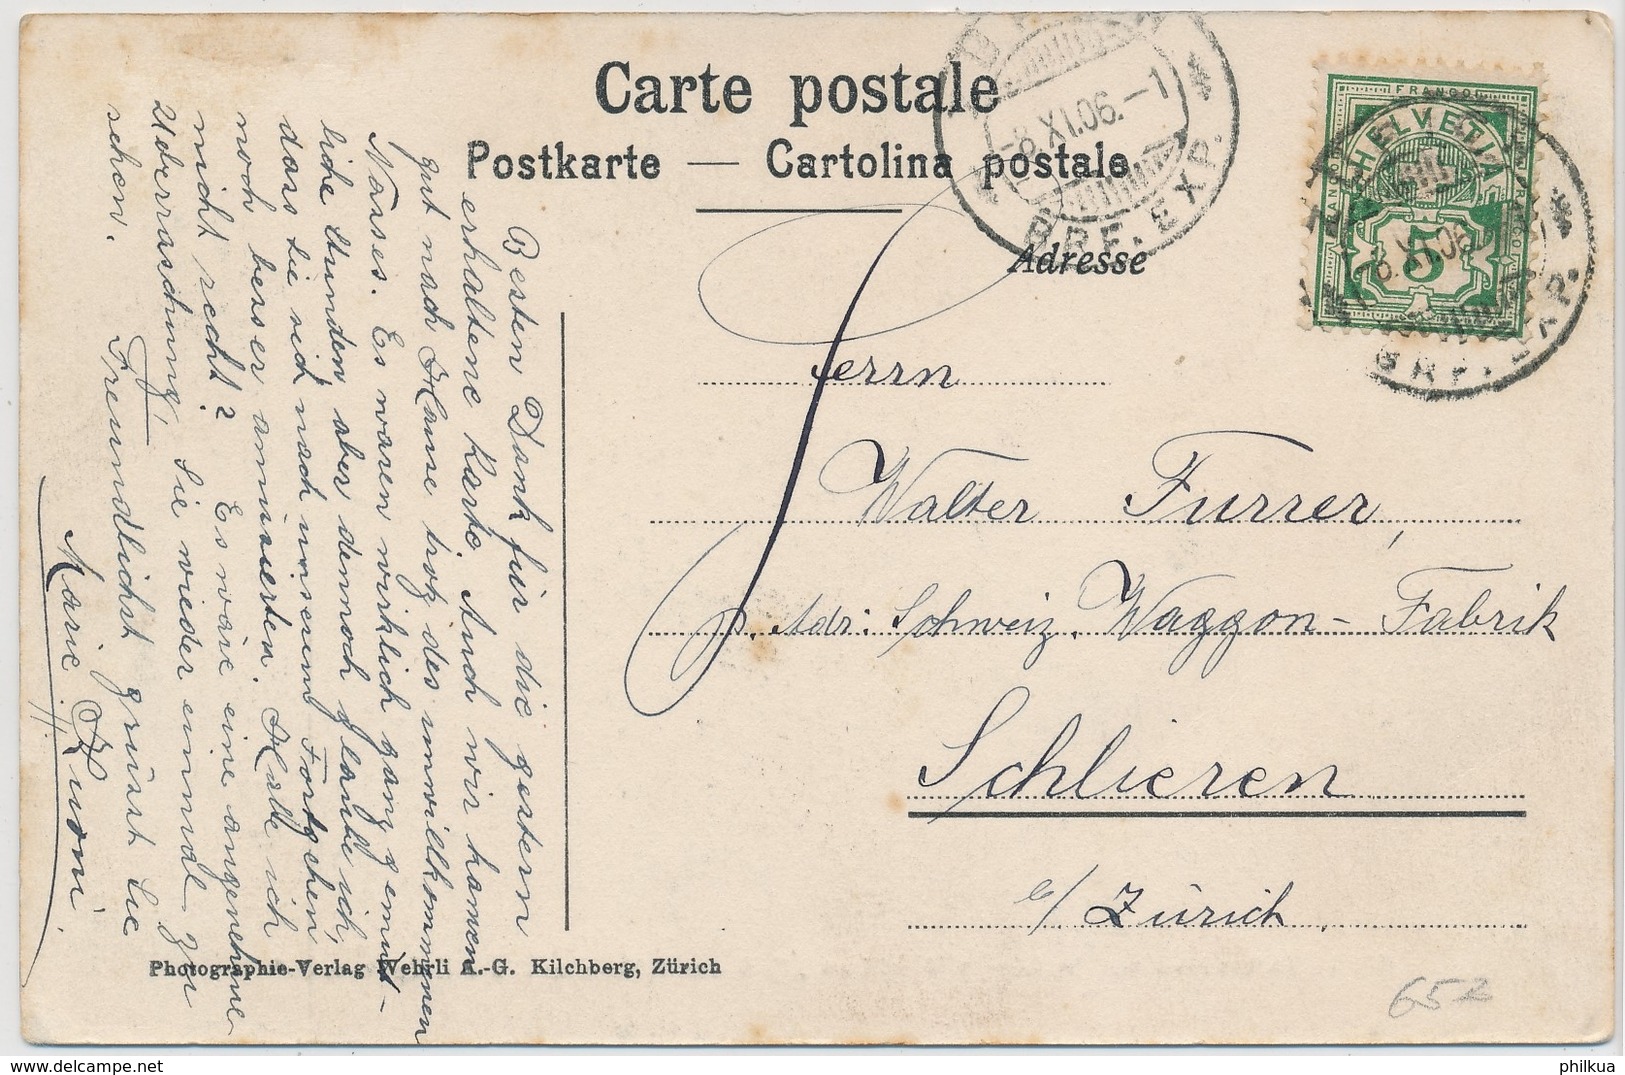 Carte postale
Postkarte — Cartolina postale
Adresse
BRF. EXP.
-8.XI.06.-1
FRANCO
HELVETIA
5
8.XI.06
BRF. EXP.
Herrn
Walter Furrer,
p. Adr: Schweiz. Waggon-Fabrik
Schlieren
b/ Zürich
Besten Dank für die gestern
erhaltene Karte. Auch wir kamen
gut nach Hause trotz des unwillkommenen
Nasses. Es waren wirklich ganz gemüt-
liche Stunden aber dennoch glaube ich,
dass Sie sich nach unserem Fortgehen
noch besser amüsierten. Habe ich
nicht recht? Es wäre eine angenehme
Ueberraschung, Sie wieder einmal zu
sehen.
Freundlichst grüsst Sie
Marie Kuoni.
Photographie-Verlag Wehrli A.-G. Kilchberg, Zürich
652
philkua